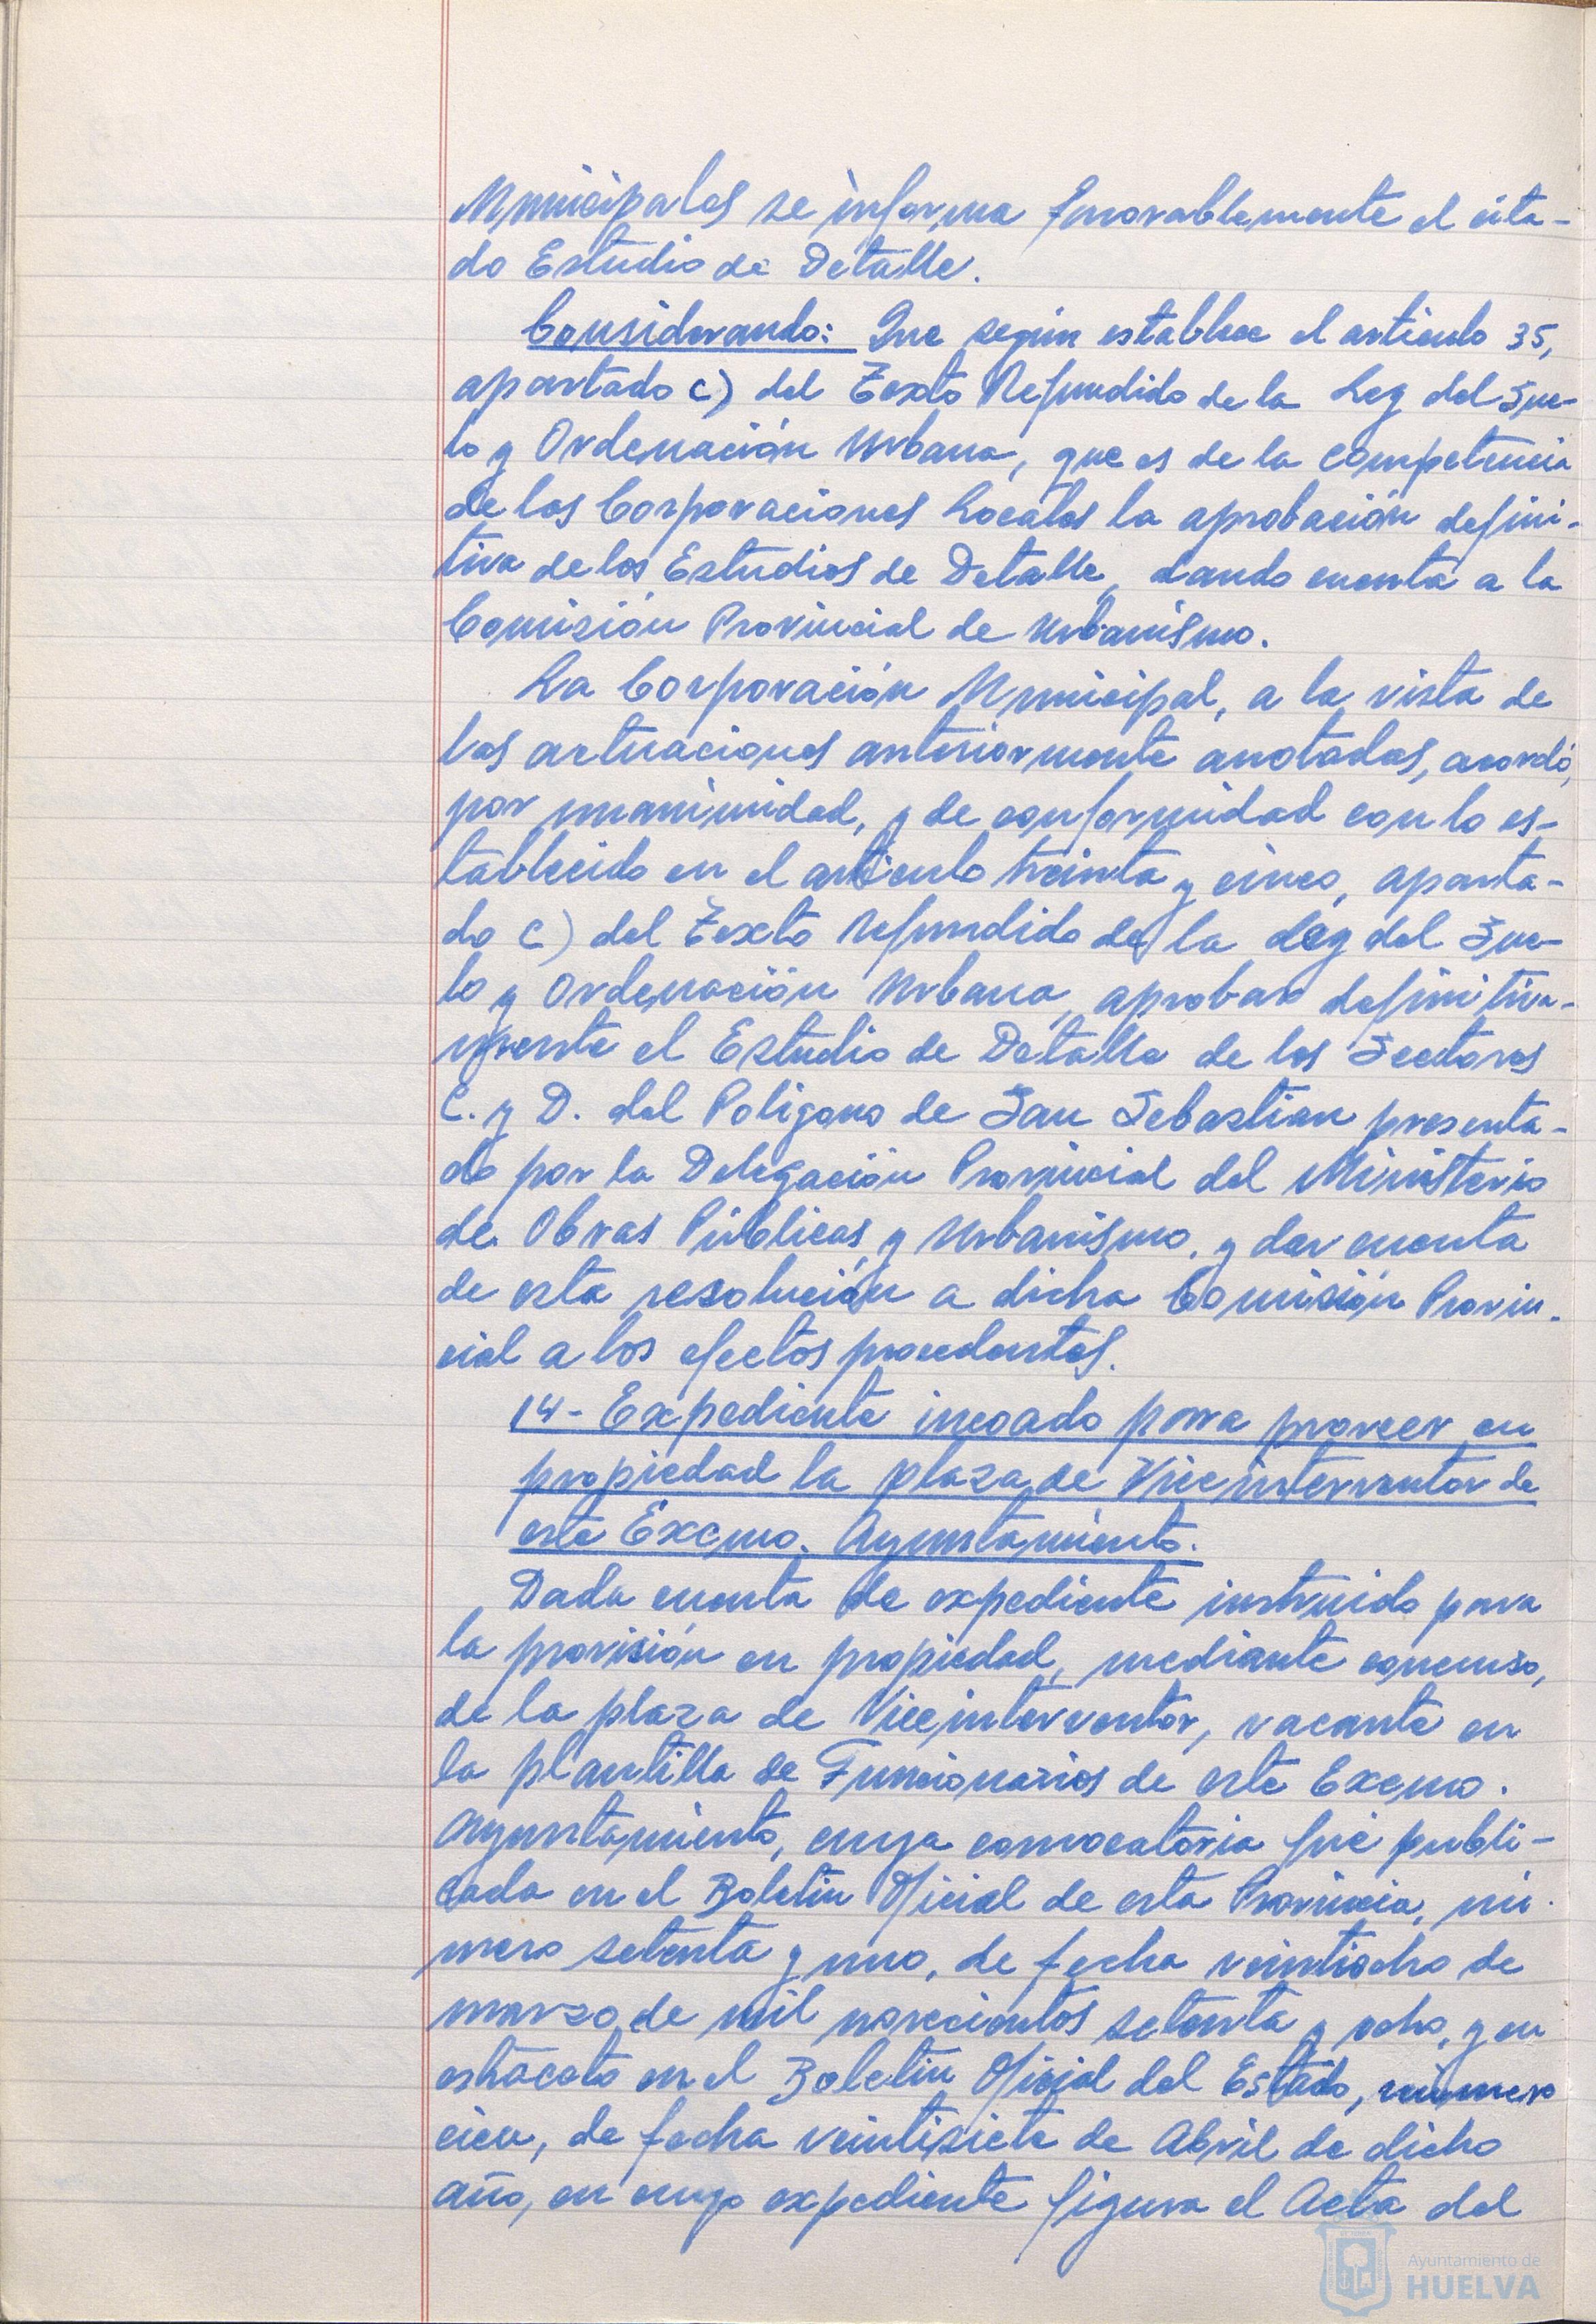 Municipales se informa favorablemente el cita-
do Estudio de Detalle.
Considerando: Que según establece el artículo 35,
apartado C) del Texto Refundido de la Ley del Sue-
lo y Ordenación Urbana, que es de la competencia
de las Corporaciones Locales la aprobación defini-
tiva de los Estudios de Detalle, dando cuenta a la
Comisión Provincial de Urbanismo.
La Corporación Municipal, a la vista de
las actuaciones anteriormente anotadas, acordó,
por unanimidad, y de conformidad con lo es-
tablecido en el artículo treinta y cinco, aparta-
do C) del Texto Refundido de la Ley del Sue-
lo y Ordenación Urbana, aprobar definitiva-
mente el Estudio de Detalle de los Sectores
C. y D. del Polígono de San Sebastian presenta-
do por la Delegación Provincial del Ministerio
de Obras Públicas y Urbanismo, y dar cuenta
de esta resolución a dicha Comisión Provin-
cial a los efectos procedentes.
14- Expediente incoado para proveer en
propiedad la plaza de Viceinterventor de
este Excmo. Ayuntamiento.
Dada cuenta de expediente instruido para
la provisión en propiedad, mediante concurso,
de la plaza de Viceinterventor, vacante en
la plantilla de Funcionarios de este Excmo.
Ayuntamiento, cuya convocatoria fué publi-
cada en el Boletín Oficial de esta Provincia, nú-
mero setenta y uno, de fecha veintiocho de
marzo de mil novecientos setenta y ocho, y en
extracto en el Boletín Oficial del Estado, número
cien, de fecha veintisiete de Abril de dicho
año, en cuyo expediente figura el Acta del
Ayuntamiento de
HUELVA